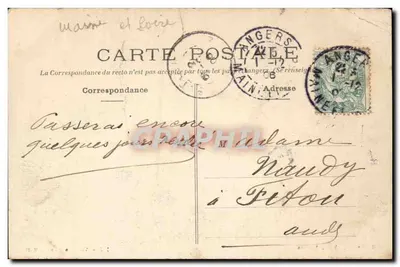 maine et loire
CARTE POSTALE
La Correspondance du recto n'est pas acceptée par tous les pays étrangers (Se renseigner
Correspondance
Adresse
ANGERS
22 15
1-12
06
MAINE
ANGERS
MAINE
Passerai encore
quelques jours
Madame
Naudy
à Fitou
aude